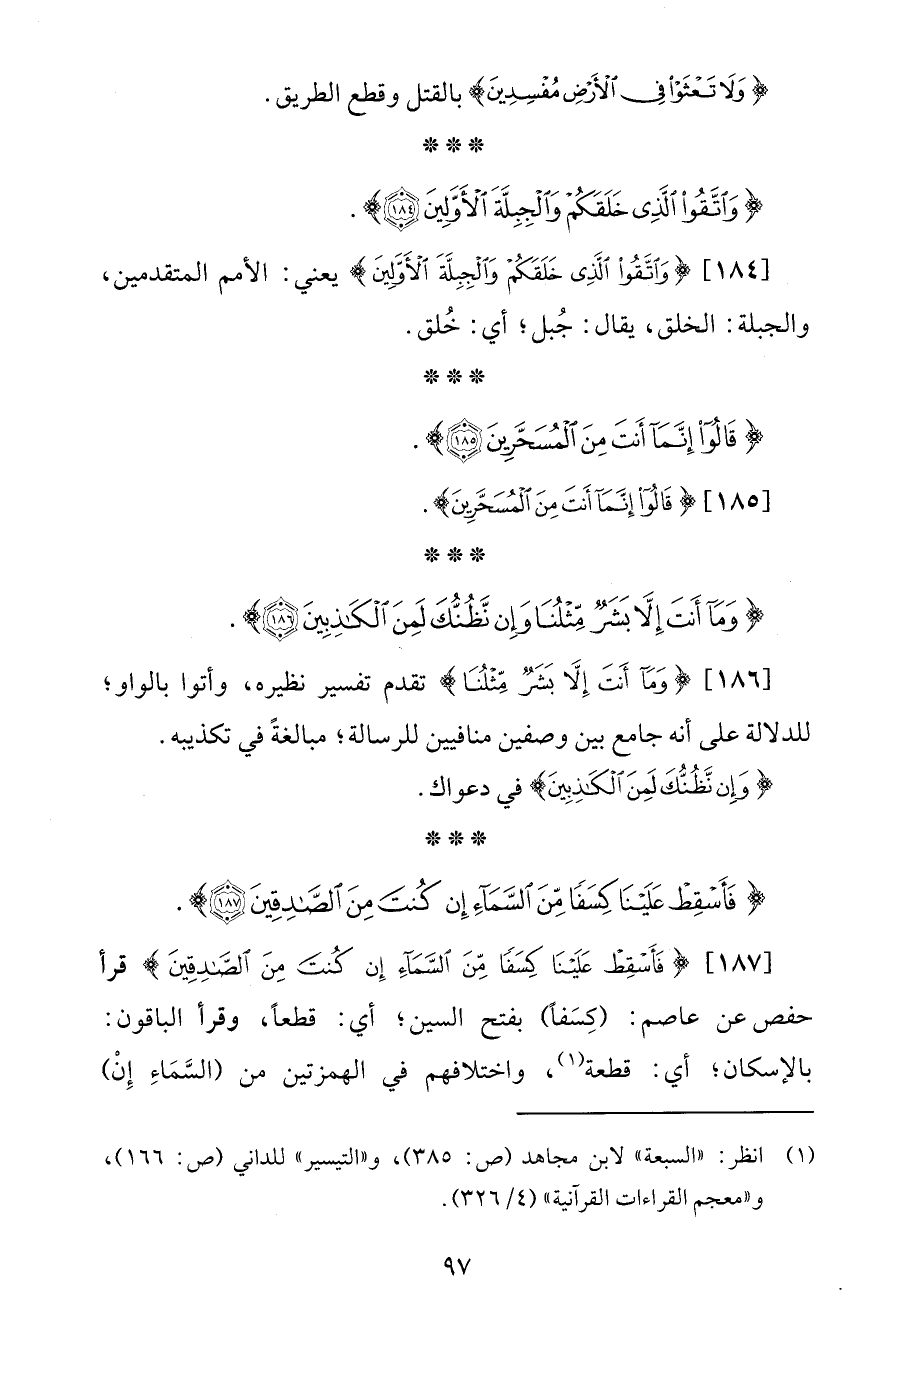 ﴿ وَلَا تَعْثَوْا۟ فِى ٱلْأَرْضِ مُفْسِدِينَ﴾ بالقتل وقطع الطريق.
* * *
﴿ وَٱتَّقُوا۟ ٱلَّذِى خَلَقَكُمْ وَٱلْجِبِلَّةَ ٱلْأَوَّلِينَ ١٨٤﴾.
[١٨٤] ﴿ وَٱتَّقُوا۟ ٱلَّذِى خَلَقَكُمْ وَٱلْجِبِلَّةَ ٱلْأَوَّلِينَ ﴾ يعني: الأمم المتقدمين،
والجبلة: الخلق، يقال: جُبل؛ أي: خُلق.
* * *
﴿ قَالُوٓا۟ إِنَّمَآ أَنتَ مِنَ ٱلْمُسَحَّرِينَ ١٨٥﴾.
[١٨٥] ﴿ قَالُوٓا۟ إِنَّمَآ أَنتَ مِنَ ٱلْمُسَحَّرِينَ﴾.
* * *
﴿ وَمَآ أَنتَ إِلَّا بَشَرٌ مِّثْلُنَا وَإِن نَّظُنُّكَ لَمِنَ ٱلْكَـٰذِبِينَ ١٨٦﴾.
[١٨٦] ﴿ وَمَآ أَنتَ إِلَّا بَشَرٌ مِّثْلُنَا ﴾ تقدم تفسير نظيره، وأتوا بالواو؛
للدلالة على أنه جامع بين وصفين منافيين للرسالة؛ مبالغةً في تكذيبه.
﴿ وَإِن نَّظُنُّكَ لَمِنَ ٱلْكَـٰذِبِينَ﴾ في دعواك.
* * *
﴿ فَأَسْقِطْ عَلَيْنَا كِسَفًا مِّنَ ٱلسَّمَآءِ إِن كُنتَ مِنَ ٱلصَّـٰدِقِينَ ١٨٧﴾.
[١٨٧] ﴿ فَأَسْقِطْ عَلَيْنَا كِسَفًا مِّنَ ٱلسَّمَآءِ إِن كُنتَ مِنَ ٱلصَّـٰدِقِينَ ﴾ قرأ
حفص عن عاصم: (كِسَفاً) بفتح السين؛ أي: قطعاً، وقرأ الباقون:
بالإسكان؛ أي: قطعة(١)، واختلافهم في الهمزتين من (السَّمَاءِ إِنْ)
(١) انظر: «السبعة» لابن مجاهد (ص: ٣٨٥)، و«التيسير» للداني (ص: ١٦٦)،
و«معجم القراءات القرآنية» (٤/ ٣٢٦).
٩٧